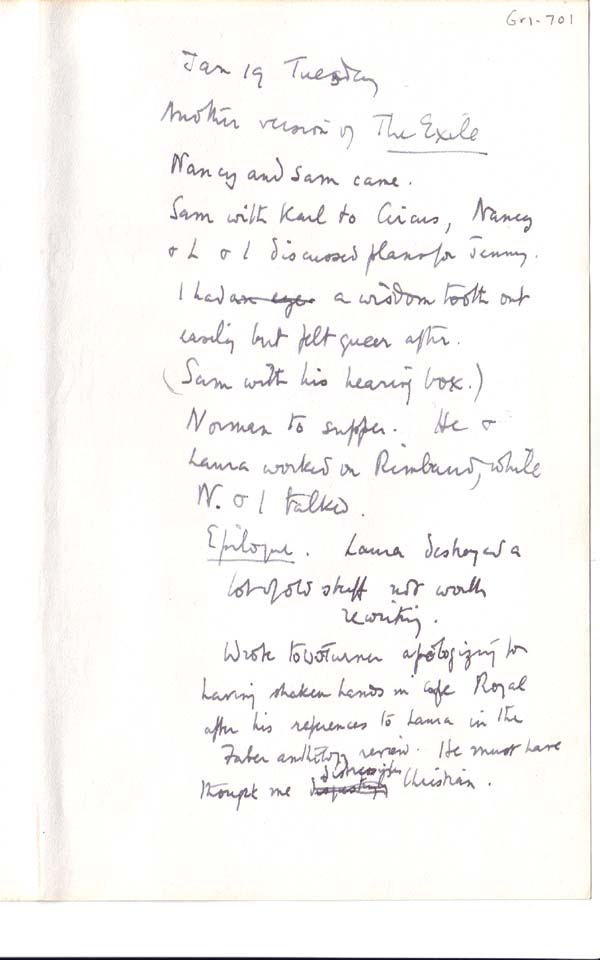 Gr1-701
Jan 19 Tuesday
Another version of The Exile
Nancy and Sam came.
Sam with Karl to Circus, Nancy
& L & I discussed plans for Jenny.
I had an eye a wisdom tooth out
easily but felt queer after.
(Sam with his hearing box.)
Norman to supper. He &
Laura worked on Rimbaud, while
N. & I talked.
Epilogue. Laura destroyed a
lot of old stuff not worth
rewriting.
Wrote to Turner apologizing for
having shaken hands in Cafe Royal
after his references to Laura in the
Faber anthology review. He must have
distressingly
thought me disgustingly Christian.